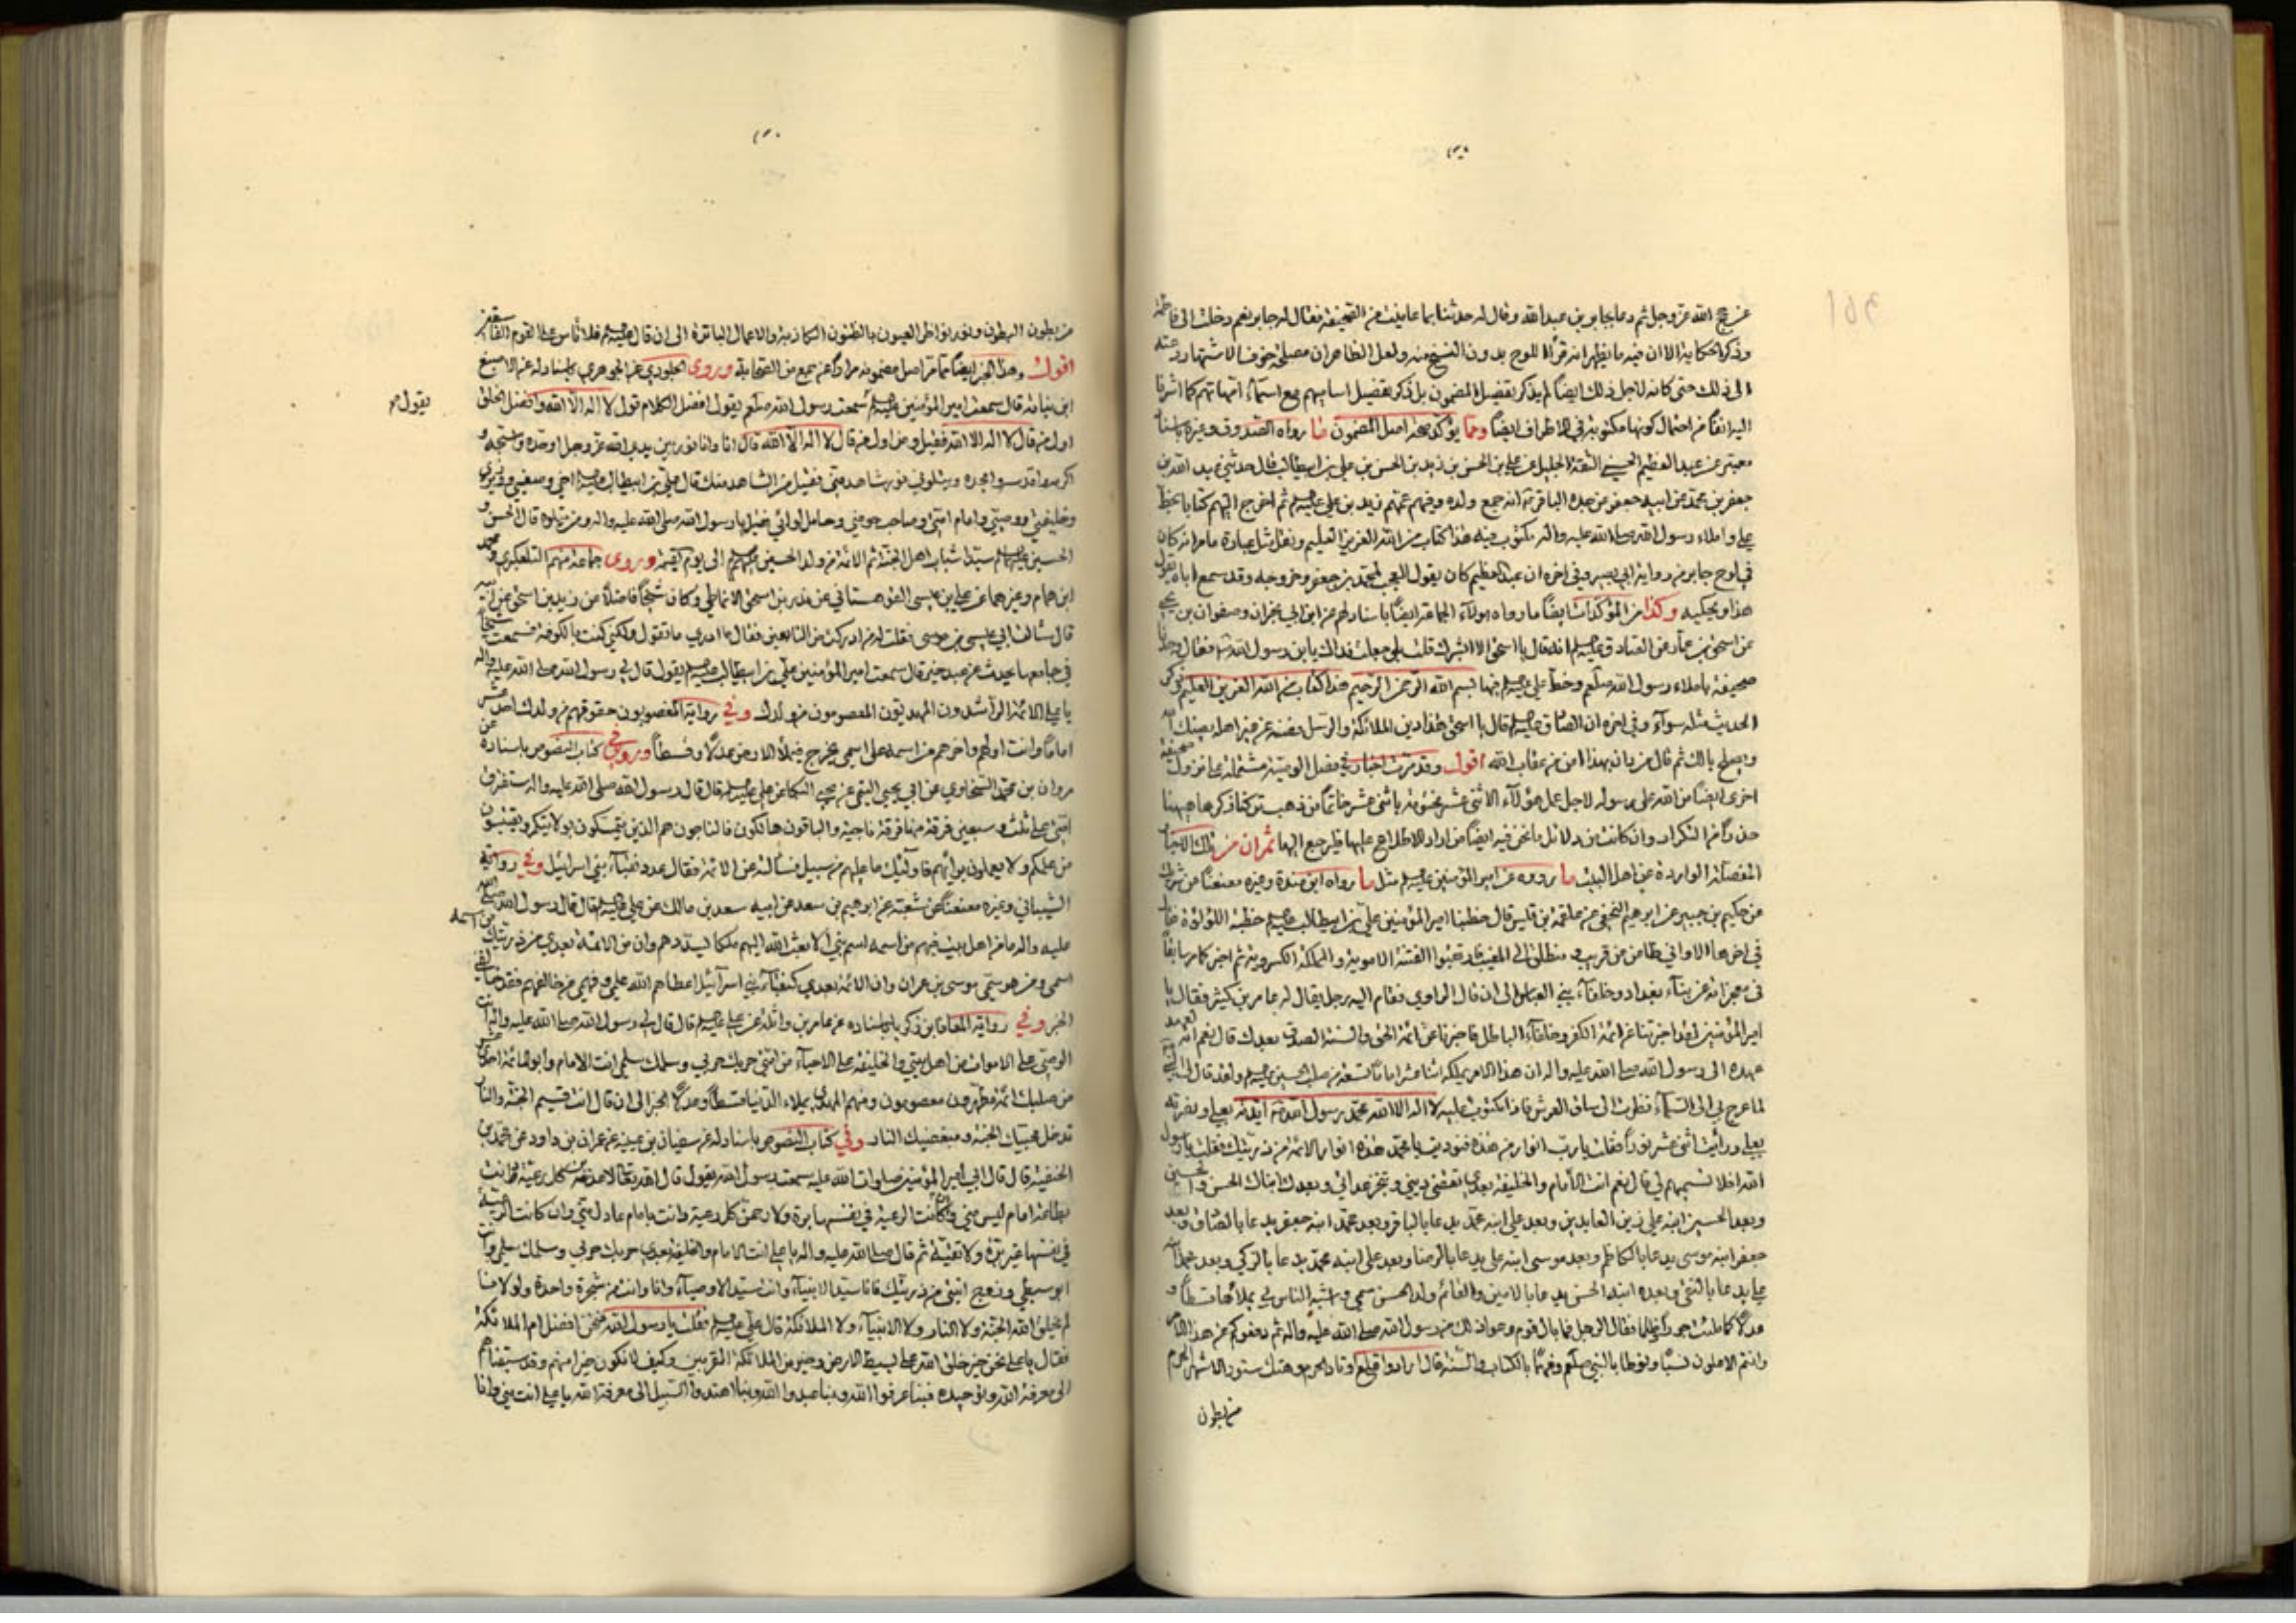 عن حج الله عز وجل ثم دعا بجابر بن عبدالله وقال له حدثنا بما عاينت من الصحيفة فقال له جابر نعم دخلت الى فاطمة
وذكر الحكاية الا ان فيه ما يظهر انه قرأ اللوح بدون النسخ منه ولعل الظاهر ان مصلحة خوف الاشتهار دعته
الى ذلك حتى كانه لاجل ذلك ايضاً لم يذكر تفصيل المضمون بل ذكر تفصيل اساميهم مع اسمآء امهاتهم كما اشرنا
اليه انفاً من احتمال كونها مكتوبة في الاطراف ايضاً ومما يؤكد صحة اصل المضمون ما رواه الصدوق وغيره باسناد
معتبر عن عبد العظيم الحسني الثقة الجليل عن علي بن الحسن بن زيد بن الحسن بن علي بن ابيطالب قال حدثني عبد الله بن
جعفر بن محمد عن ابيه جعفر عن جده الباقر انه جمع ولده وفيهم عمهم زيد بن علي ثم اخرج اليهم كتابا بخط
علي واملاء رسول الله صلى الله عليه واله مكتوب فيه هذا كتاب من الله العزيز العليم ونقل مثل عبارة ما مر انه كان
في لوح جابر من رواية ابي بصير وفي اخره ان عبد العظيم كان يقول العجب لمحمد بن جعفر وخروجه وقد سمع اباه يقول
هذا ويحكيه وكذا من المؤكدات ايضاً ما رواه هولآء الجماعة ايضاً باسنادهم عن ابن ابي نجران وصفوان بن يحيى
عن اسحق بن عمار عن الصادق انه قال يا اسحق الا ابشرك قلت بلى جعلت فداك يا بن رسول الله فقال وجدنا
صحيفة باملاء رسول الله صلعم وخط علي فيها بسم الله الرحمن الرحيم هذا كتاب من الله العزيز العليم وذكر
الحديث مثله سوآء وفي اخره ان الصادق قال يا اسحق هذا دين الملائكة والرسل فصنه عن غير اهله يصنك الله
ويصلح بالك ثم قال من دان بهذا امن من عقاب الله اقول وقد مرت اخبار في فصل الوصية مشتملة على نزول صحيفة
اخرى ايضاً من الله على رسوله لاجل عمل هؤلآء الاثنى عشر مختومة باثنى عشر خاتماً من ذهب تركنا ذكرها ههنا
حذراً من التكرار وان كانت من دلائل ما نحن فيه ايضاً من اراد الاطلاع عليها فليرجع اليها ثم ان من تلك الاخبار
المفصلة الواردة عن اهل البيت ما رووه عن امير المؤمنين مثل ما رواه ابن مندة وغيره معنعناً عن شريك
عن حكيم بن جبير عن ابرهيم النخعي عن علقمة بن قيس قال خطبنا امير المؤمنين علي بن ابيطالب خطبة اللؤلؤة فقال
في اخرها الا واني ظاعن عن قريب و منطلق الى المغيب فارتقبوا الفتنة الاموية والمملكة الكسروية ثم اخبر كما مر سابقاً
في معجزاته عن بنآء بغداد وخلفآء بني العباس الى ان قال الراوي فقام اليه رجل يقال له عامر بن كثير فقال يا
امير المؤمنين لقد اخبرتنا عن ائمة الكفر وخلفآء الباطل فاخبرنا عن ائمة الحق والسنة الصدق بعدك قال نعم انه لعهد
عهده الى رسول الله صلى الله عليه واله ان هذا الامر يملكه اثنا عشر اماماً تسعة من صلب الحسين ولقد قال النبي
لما عرج بي الى السمآء نظرت الى ساق العرش فاذا مكتوب عليه لا اله الا الله محمد رسول الله ايدته بعلي ونصرته
بعلي ورأيت اثنى عشر نوراً فقلت يا رب انوار من هذه فنوديت يا محمد هذه انوار الائمة من ذريتك فقلت يا رسول
الله افلا تسميهم لي قال نعم انت الامام والخليفة بعدي تقضي ديني وتنجز عداتي وبعدك ابناك الحسن والحسين
وبعد الحسين ابنه علي زين العابدين وبعد علي ابنه محمد يدعا بالباقر وبعد محمد ابنه جعفر يدعا بالصادق وبعد
جعفر ابنه موسى يدعا بالكاظم وبعد موسى ابنه علي يدعا بالرضا وبعد علي ابنه محمد يدعا بالزكي وبعد محمد ابنه
علي يدعا بالنقي وبعده ابنه الحسن يدعا بالامين والقائم ولد الحسن سمي واشبه الناس بي يملاها قسطاً و
عدلاً كما ملئت جوراً وظلما فقال الرجل فما بال قوم وعوا ذلك من رسول الله صلى الله عليه واله ثم دفعوكم عن هذا الامر
وانتم الاعلون نسبا ونوطا بالنبي صلعم وفهماً بالكتاب والسنة قال ارادوا قلع اوتاد الحرم وهتك ستور الاشهر الحرم
من بطون
من بطون البطون ونور نواظر العيون بالظنون الكاذبة والاعمال البائرة الى ان قال فلا تاس على القوم الفاسقين
اقول وهذا الخبر ايضاً مما مر اصل مضمونه مراراً عن جمع من الصحابة وروى الجلودي عن الجوهري باسناده عن الاصبغ
ابن نباته قال سمعت امير المؤمنين يقول سمعت رسول الله صلعم يقول افضل الكلام قول لا اله الا الله وافضل الخلق
يقول
اول من قال لا اله الا الله فقيل ومن اول من قال لا اله الا الله قال انا وانا نور بين يدي الله عز وجل اوحده واسبحه و
اكبره واقدسه وامجده ويتلوني نور شاهد مني فقيل من الشاهد منك قال علي بن ابيطالب اخي وصفيي ووزيري
وخليفتي ووصيي وامام امتي وصاحب حوضي وحامل لوائي فقيل يا رسول الله صلى الله عليه واله ومن يتلوه قال الحسن و
الحسين سيدا شباب اهل الجنة ثم الائمة من ولد الحسين الى يوم القيمة وروى جماعة منهم التلعكبري ومحمد
ابن همام وغيرهما عن علي بن عيسى القوهستاني عن بدر بن اسحق الانماطي وكان شيخاً فاضلاً عن زيد بن اسحق عن ابيه
قال سالت ابي عيسى بن موسى فقلت له من ادركت من التابعين فقال ما ادري ما تقول ولكني كنت بالكوفة فسمعت شيخاً
في جامعها يحدث عن عبد خير قال سمعت امير المؤمنين علي بن ابيطالب يقول قال لي رسول الله صلى الله عليه واله
يا علي الائمة الراشدون المهديون المعصومون من ولدك وفي رواية المغصوبون حقوقهم من ولدك احد عشر
اماما وانت اولهم واخرهم من اسمه على اسمي يخرج فيملأ الارض عدلاً وقسطاً وروى في كتاب النصوص باسناده عن
مروان بن محمد السنجاوي عن ابي يحيى التيمي عن يحيى البكا عن علي قال قال رسول الله صلى الله عليه واله ستفترق
امتي على ثلث وسبعين فرقة منها فرقة ناجية والباقون هالكون فالناجون هم الذين يتمسكون بولايتكم ويقتبسون
من علمكم ولا يعملون برأيهم فاولئك ما عليهم من سبيل فسألته عن الائمة فقال عدد نقبآء بني اسرائيل وفي رواية
الشيباني وغيره معنعناً عن شعبة عن ابرهيم بن سعد عن ابيه سعد بن مالك عن علي قال قال رسول الله صلى الله
عليه واله ما من اهل بيت فيهم من اسمه اسم نبي الا بعث الله اليهم ملكا يسددهم وان من الائمة بعدي من ذريتك من اسمه
اسمي ومن هو سمي موسى بن عمران وان الائمة بعدي كنقبآء بني اسرآئيل اعطاهم الله علمي وفهمي فمن خالفهم فقد خالفني
الخبر وفي رواية المعافا بن زكريا باسناده عن عامر بن واثلة عن علي قال قال لي رسول الله صلى الله عليه واله انت
الوصي على الاموات من اهل بيتي والخليفة على الاحيآء من امتي حربك حربي وسلمك سلمي انت الامام وابو الائمة احد عشر
من صلبك ائمة مطهرون معصومون ومنهم المهدي يملاء الدنيا قسطاً وعدلاً الخبر الى ان قال انت قسيم الجنة والنار
تدخل محبيك الجنة ومبغضيك النار وفي كتاب النصوص باسناده عن سفيان بن عيينه عن عمران بن داود عن محمد بن
الحنفية قال قال ابي امير المؤمنين صلوات الله عليه سمعت رسول الله يقول قال الله تعالى لاعذبن كل رعية دانت
بطاعة امام ليس مني وان كانت الرعية في نفسها برة ولارحمن كل رعية دانت بامام عادل مني وان كانت الرعية
في نفسها غير برة ولا تقية ثم قال صلى الله عليه واله يا علي انت الامام والخليفة بعدي حربك حربي وسلمك سلمي وانت
ابو سبطي وزوج ابنتي من ذريتك فانا سيد الانبيآء وانت سيد الاوصيآء وانا وانت من شجرة واحدة ولولانا
لم يخلق الله الجنة ولا النار ولا الانبيآء ولا الملائكة قال علي فقلت يا رسول الله فنحن افضل ام الملائكة
فقال يا علي نحن خير خلق الله على بسيط الارض وخير من الملائكة المقربين وكيف لا نكون خيرا منهم وقد سبقناهم
الى معرفة الله وتوحيده فبنا عرفوا الله وبنا عبدوا الله وبنا اهتدوا السبيل الى معرفة الله يا علي انت مني وانا